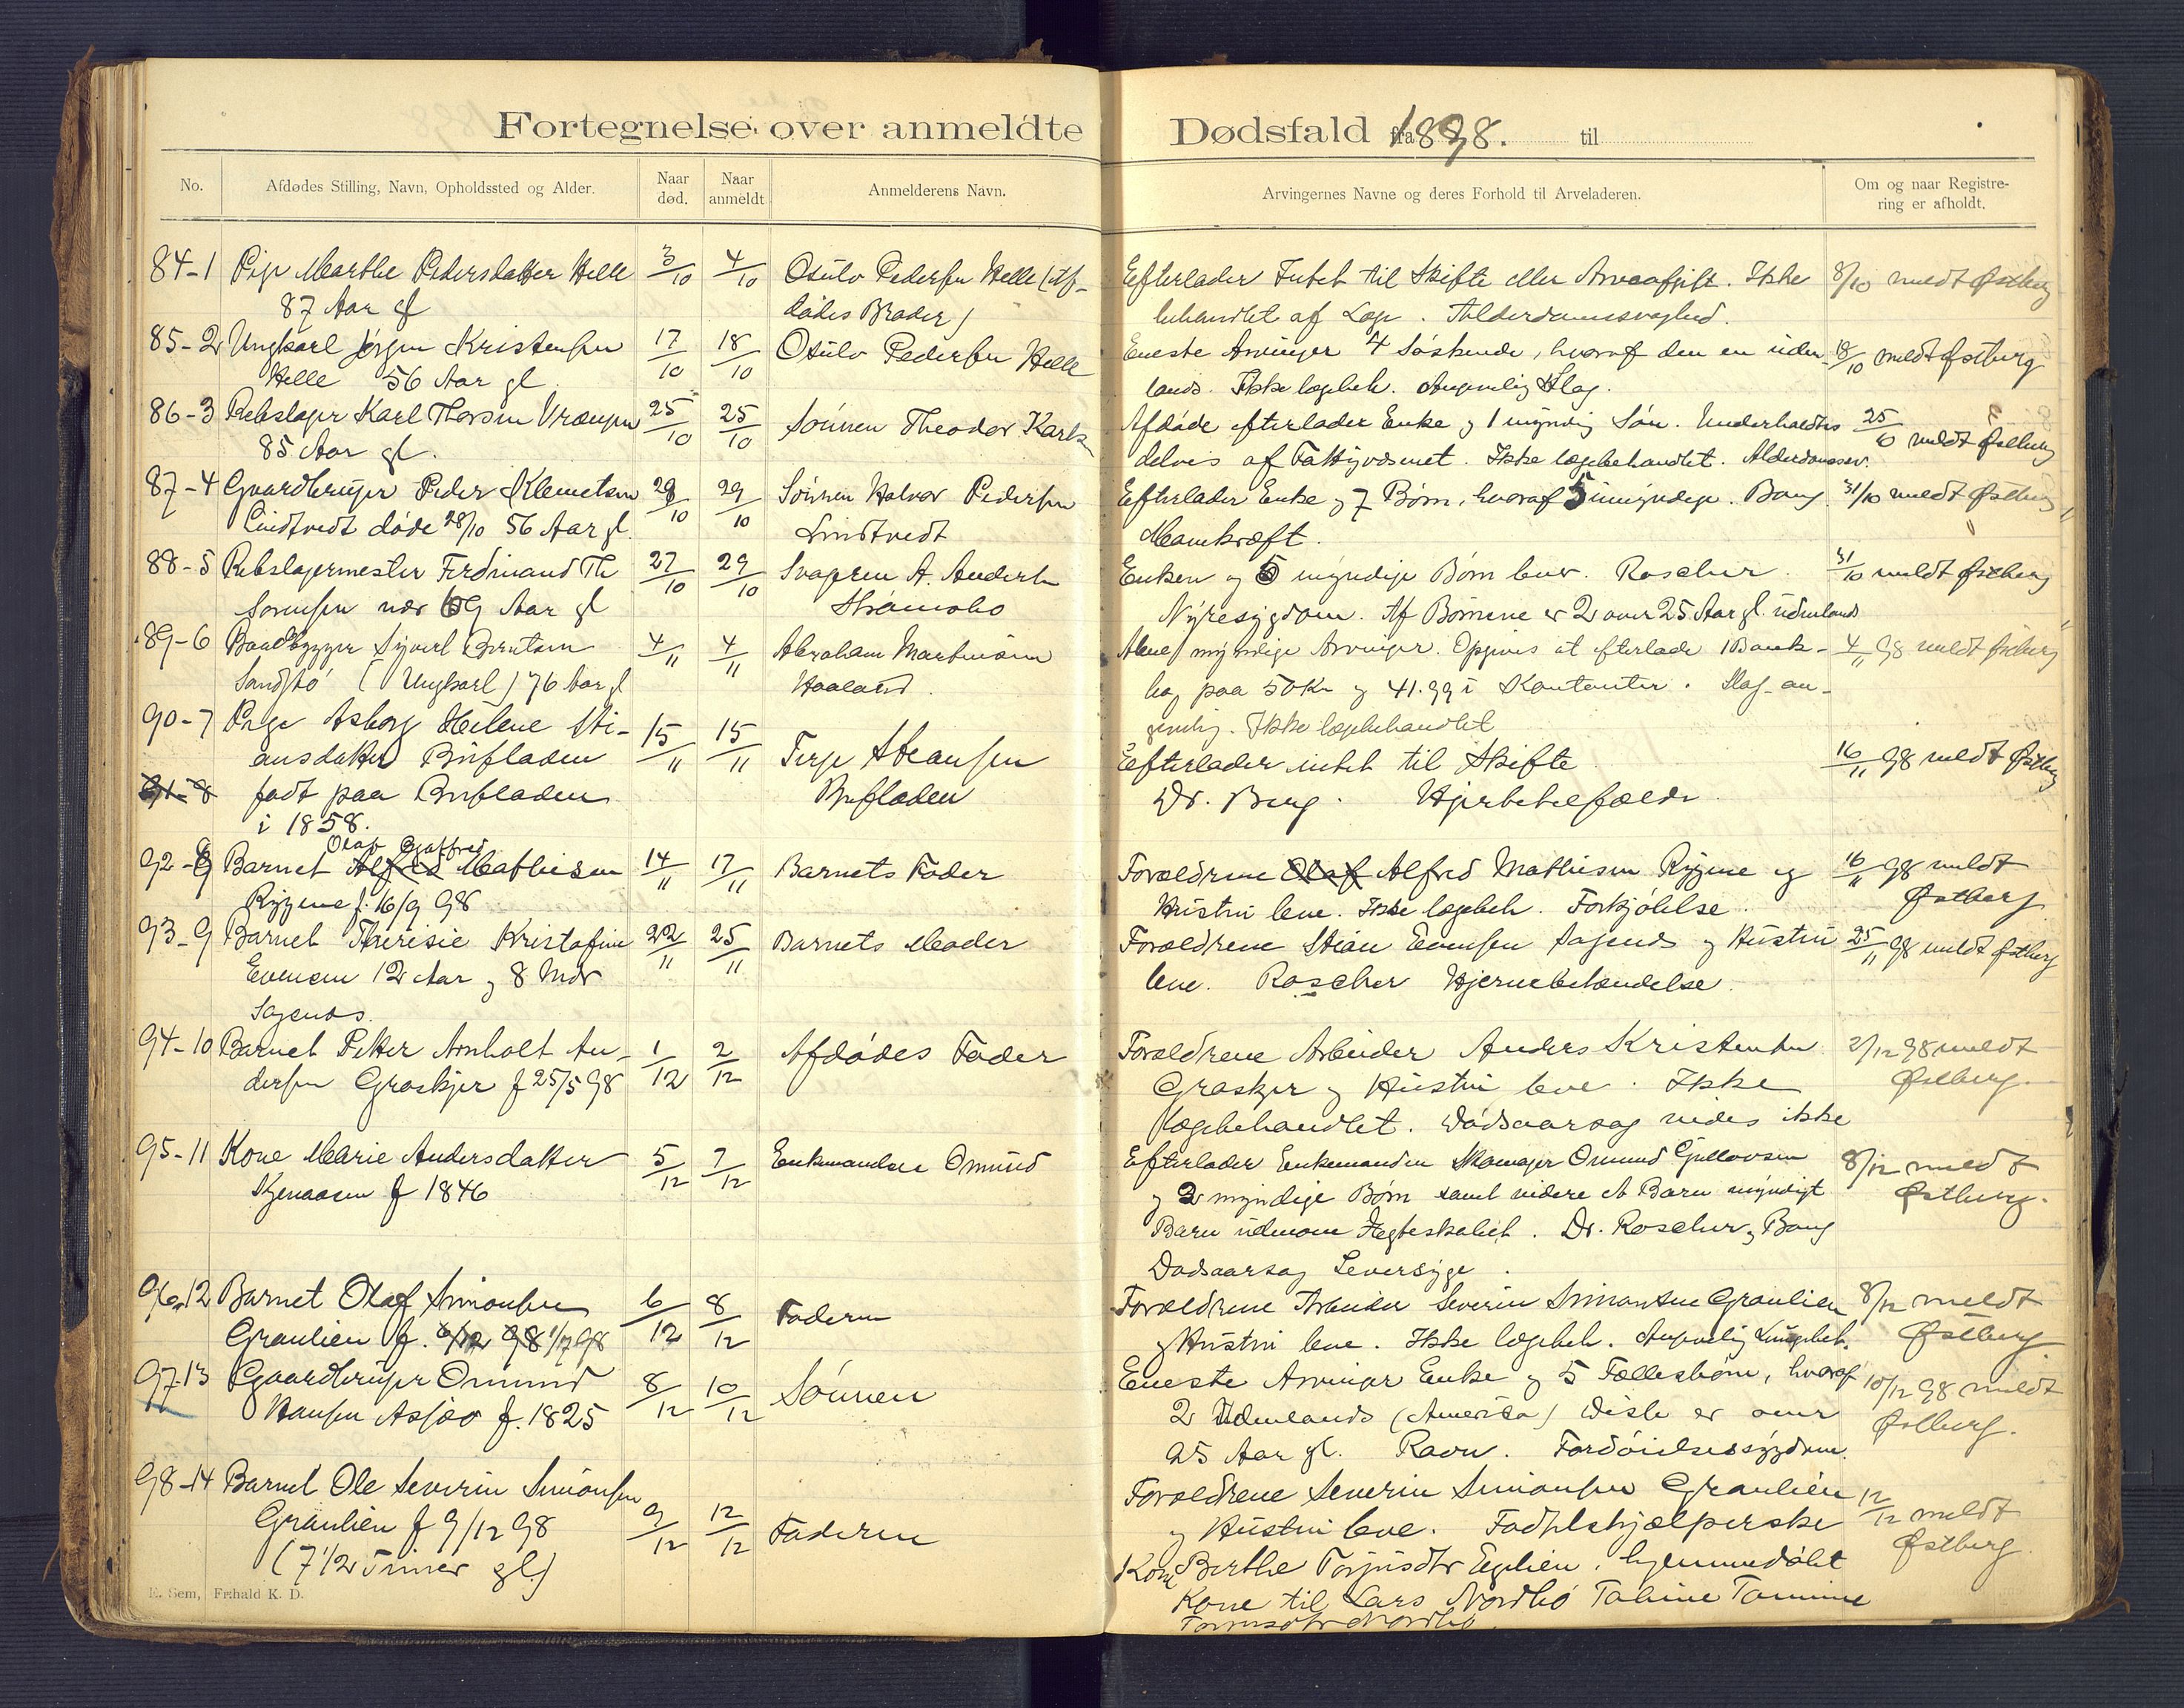 Fortegnelse over anmeldte Dødsfald fra 1898. til
No.
Afdødes Stilling, Navn, Opholdssted og Alder.
Naar død.
Naar anmeldt
Anmelderens Navn.
Arvingernes Navne og deres Forhold til Arveladeren.
Om og naar Registre-
ring er afholdt.
84-1 Pige Marthe Pedersdatter Helle 3/10 4/10 Osulv Pedersen Helle (Af-
87 Aar gl
dødes Broder)
Efterlader Intet til Skifte eller Arveafgift. Ikke 8/10 meldt Østberg
behandlet af Læge. Alderdomssvaghed.
85-2 Ungkarl Jørgen Kristensen 17/10 18/10 Osulv Pedersen Helle
Helle 56 Aar gl.
Eneste Arvinger 4 Søskende, hvoraf den en uden- 18/10 meldt Østberg
lands. Ikke lægebeh. Angivelig Slag.
86-3 Rebslager Karl Thorsen Vrængen 25/10 25/10 Sønnen Theodor Karls
85 Aar gl.
Afdøde efterlader Enke og 1 myndig Søn. Underholdtes 25/10 meldt Østberg
delvis af Fattigvæsenet. Ikke lægebehandlet. Alderdomssv.
87-4 Gaardbruger Peder Klemetsen 28/10 29/10 Sønnen Halvor Pedersen
Lindtvedt døde 28/10 56 Aar gl.
Lindtvedt
Efterlader Enke og 7 Børn, hvoraf 5 umyndige. Bang. 31/10 meldt Østberg
Mavekræft.
88-5 Rebslagermester Ferdinand Th 27/10 29/10 Svogeren A. Anders
Sørensen nær 69 Aar gl
Strømsbo
Enken og 5 myndige Børn lever. Roscher. 31/10 meldt Østberg
Nyresygdom. Af Børnene er 2 over 25 Aar gl. udenlands
89-6 Baadbygger Sivert Berntsen 4/11 4/11 Abraham Martinsen
Sandstø (Ungkarl) 76 Aar gl
Haaland.
Alene myndige Arvinger. Opgives at efterlade 1 Bank- 4/11 98 meldt Østberg
bog paa 50 Kr og 41.99 i Kontanter. Slag - an-
givelig. Ikke lægebehandlet
90-7 Pige Asborg Helene Sti- 15/11 15/11 Terje Stiansen
ansdatter Bufladen
Bufladen
91-8 født paa Bufladen
i 1858.
Efterlader intet til Skifte 16/11 98 meldt Østberg
Dr. Berg. Hjertetilfælde.
Olaf Gottfred
92-8 Barnet Alfred Mathisen 14/11 17/11 Barnets Fader
Rygene f. 16/9 98
Forældrene Olaf Alfred Mathisen Rygene og 16/11 98 meldt
Hustru leve. Ikke lægebeh. Forkjølelse. Østberg
93-9 Barnet Therisie Kristofine 22/11 25/11 Barnets Moder
Evensen 12 Aar og 8 Mdr
Sagenes.
Forældrene Stian Evensen Sagenes og Hustru 25/11 98 meldt Østberg
leve. Roscher Hjernebetændelse.
94-10 Barnet Petter Arnholt An- 1/12 2/12 Afdødes Fader
dersen Graskjer f 25/5 98
Forældrene Arbeider Anders Kristensen 2/12 98 meldt
Graskjer og Hustru leve. Ikke Østberg.
lægebehandlet. Dødsaarsag vides ikke
95-11 Kone Marie Andersdatter 5/12 7/12 Enkemanden Omund
f 1846
Efterlader Enkemanden Skomager Omund Gullovsen 8/12 meldt
og 2 myndige Børn samt videre et Barn myndigt Østberg.
Barn udenom Ægteskabet. Dr. Roscher og Bang
Dødsaarsag Leversyge.
96-12 Barnet Olaf Simonsen 6/12 8/12 Faderen
Graulien f. 6/12 98 1/7 98
Forældrene Arbeider Severin Simonsen Graulien 8/12 meldt
og Hustru leve. Ikke lægebeh. Angivelig Lungebet. Østberg
97-13 Gaardbruger Omund 8/12 10/12 Sønnen
Hansen Assjøo f. 1825
Eneste Arvinger Enke og 5 Fællesbørn, hvoraf 10/12 98 meldt
2 Udenlands (Amerika) Disse er over Østberg.
25 Aar gl. Ravn. Fordøielsessygdom.
98-14 Barnet Ole Severin Simonsen 9/12 12/12 Faderen
Graulien f 9/12 98
(7 1/2 Timer gl.)
Forældrene Severin Simonsen Graulien 12/12 meldt
og Hustru leve. Fødselshjælperske Østberg.
Kone Berthe Torjusdtr Egelien. hjemmedøbt
Kone til Lars Nordbø Tobine Tomine
Nordbø.
E. Sem, Frhald K. D.